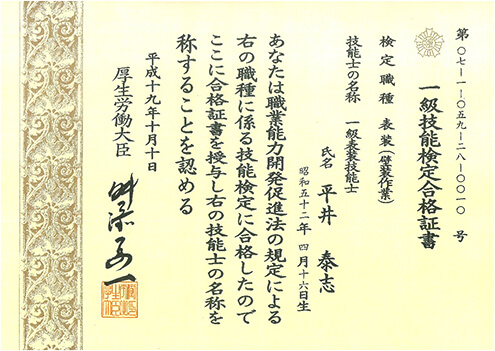 第〇七-一-〇五九-二八-〇〇一〇号
一級技能検定合格証書
検定職種 表装(壁装作業)
技能士の名称 一級表装技能士
氏名 平井 泰志
昭和五十二年 四月十六日生
あなたは職業能力開発促進法の規定による
右の職種に係る技能検定に合格したので
ここに合格証書を授与し右の技能士の名称を
称することを認める
平成十九年十月十日
厚生労働大臣 舛添要一